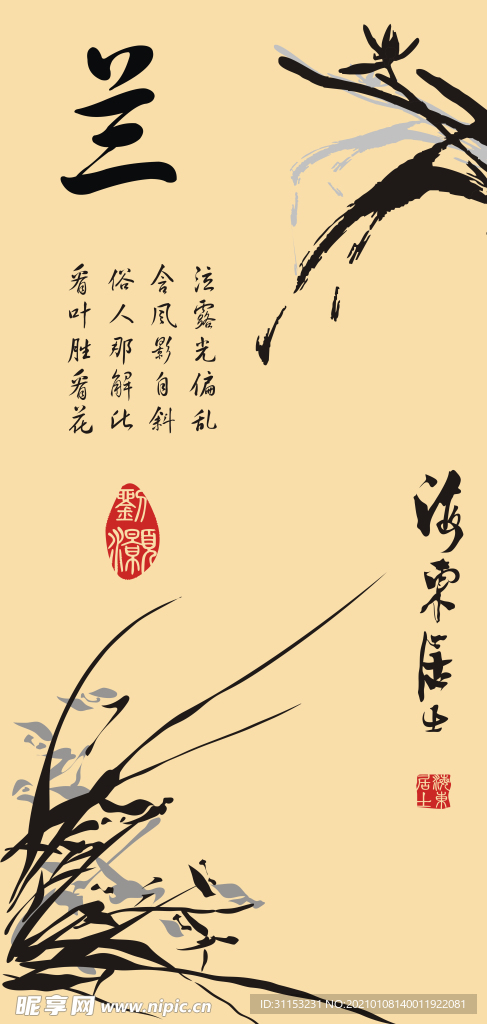 兰
泣露光偏乱
含风影自斜
俗人那解此
看叶胜看花
海东居士
海東居士
昵享网 www.nipic.cn
ID:31153231 NO:20210108140011922081